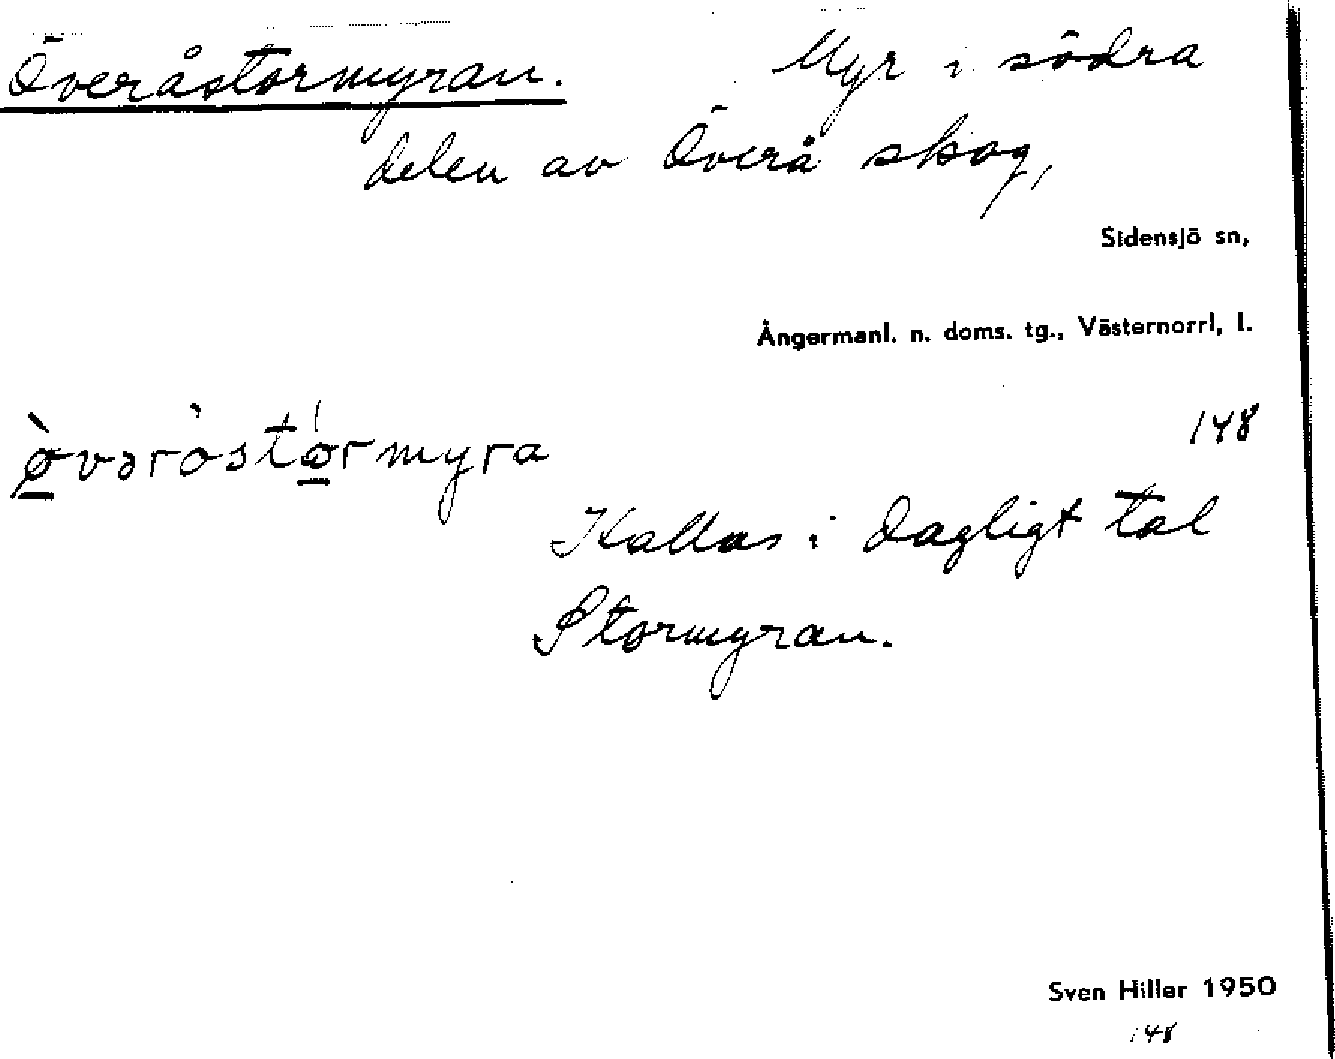 Överåstormyran. Myr i södra
delen av Överå skog,
Sidensjö sn,
Ångermanl. n. doms. tg., Västernorrl, l.
148
ø̀vəròstǿrmyra
Kallas i dagligt tal
Stormyran.
Sven Hiller 1950
148